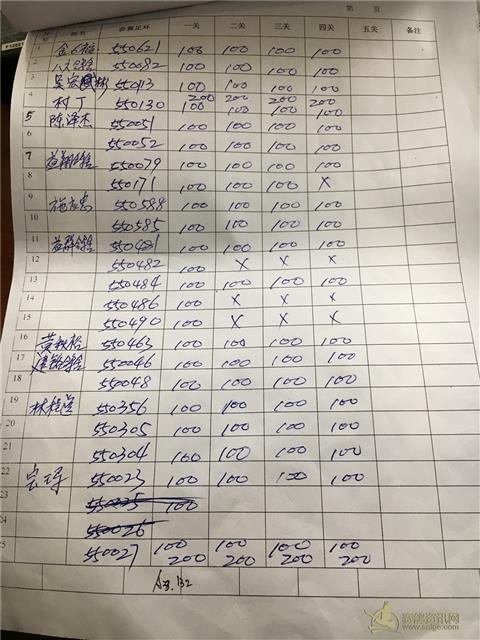 第 页
序号 姓名 参赛足环 一关 二关 三关 四关 五关 备注
1 550621 100 100 100 100
2 550092 100 100 100 100
3 550113 100 100 100 100
4 村丁 550130 100 200 100 200 100 200 100 200
5 陈泽杰 550051 100 100 100 100
6 550052 100 100 100 100
7 550079 100 100 100 100
8 550171 100 100 100 X
9 550588 100 100 100 100
10 550585 100 100 100 100
11 550481 100 100 100 100
12 550482 100 X X X
13 550484 100 100 100 100
14 550486 100 X X X
15 550490 100 X X X
16 黄秋松 550463 100 100 100 100
17 550046 100 100 100 100
18 550048 100 100 100 100
19 550356 100 100 100 100
20 550305 100 100 100 100
21 550304 100 100 100 100
22 550023 100 100 100 100
23 100
24 550026
25 550027 100 200 100 200 100 200 100 200
www.snige.com